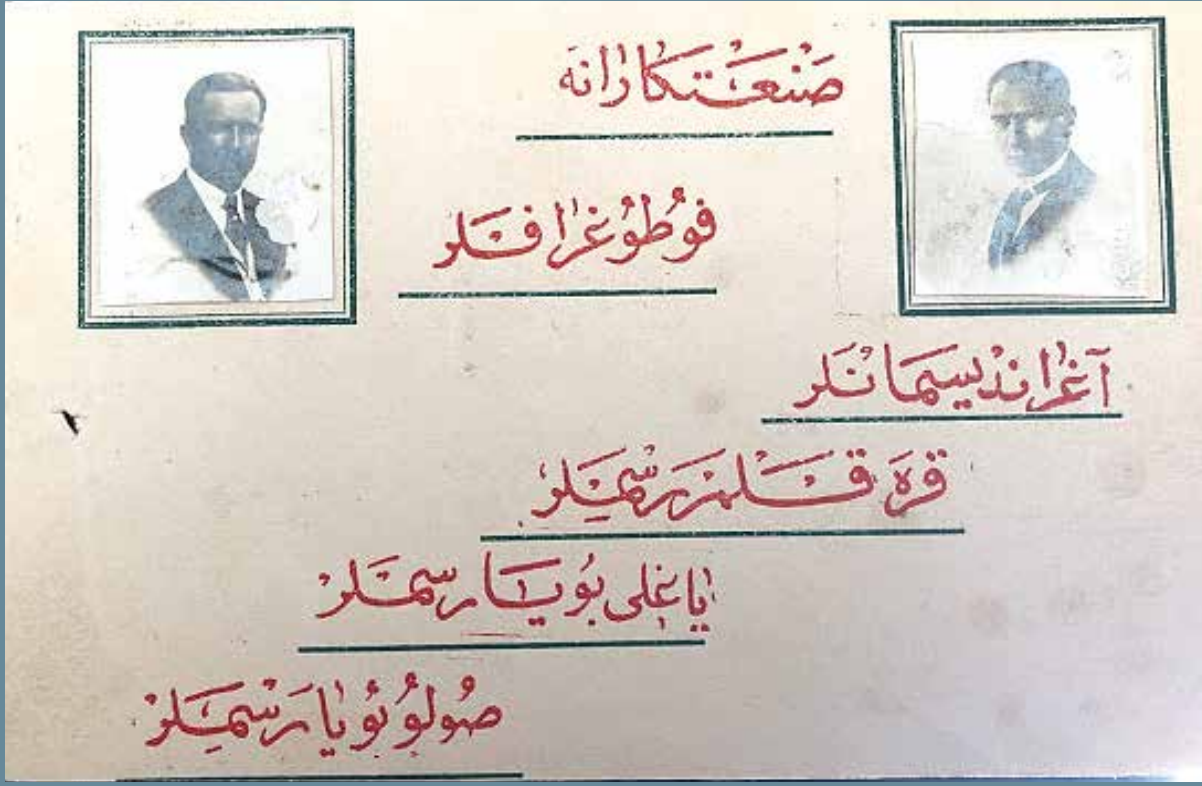 صنعتكارانه
فوطوغرافلر
آغرانديسمانلر
قره قلم رسملر
ياغلى بويا رسملر
صولو بويا رسملر